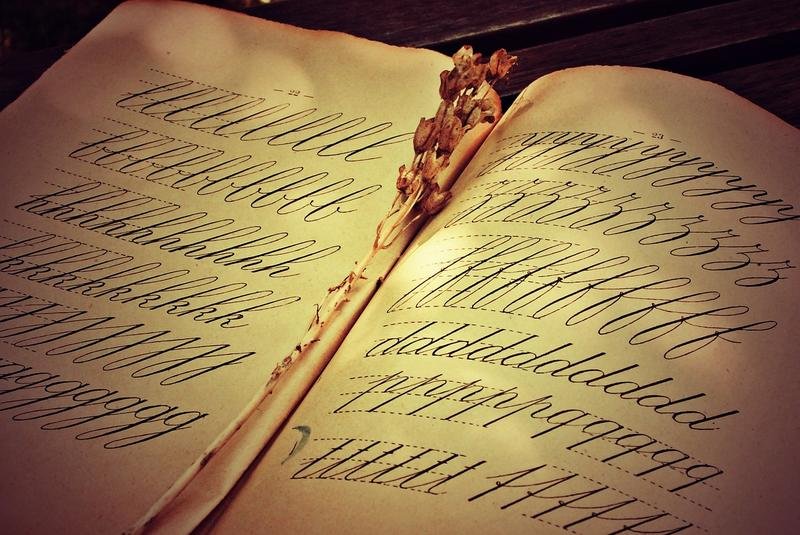 22
lllllllllll
bbbbbbbbbb
hhhhhhhhhhh
kkkkkkkkk
ggggggg
23
yyyyyyyyyyyy
zzzzzzzzzzz
fffffffffff
ddddddddddddd
ppppppqqqqqq
ttttttt